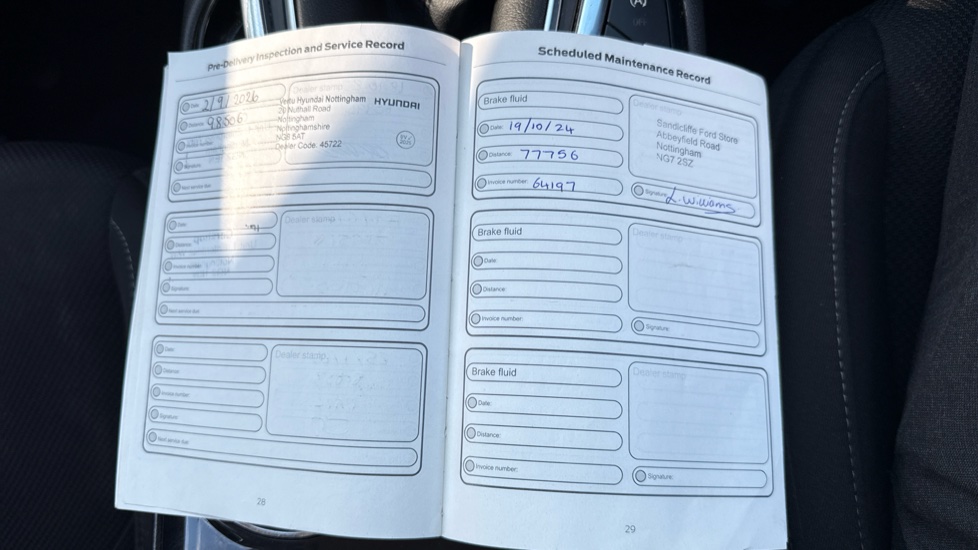 Pre-Delivery Inspection and Service Record
Dealer stamp
Date: 2/9/2026
Distance: 98606
Invoice number:
Signature:
Next service due:
Vertu Hyundai Nottingham HYUNDAI
20 Nuthall Road
Nottingham
Nottinghamshire
NG8 5AT
Dealer Code: 45722
Date:
Dealer stamp
Distance:
Invoice number:
Signature:
Next service due:
Date:
Dealer stamp
Distance:
Invoice number:
Signature:
Next service due:
28
Scheduled Maintenance Record
Brake fluid
Dealer stamp
Date: 19/10/24
Distance: 77756
Invoice number: 64197
Sandicliffe Ford Store
Abbeyfield Road
Nottingham
NG7 2SZ
Signature: L. Williams
Brake fluid
Dealer stamp
Date:
Distance:
Invoice number:
Signature:
Brake fluid
Dealer stamp
Date:
Distance:
Invoice number:
Signature:
29
OFF